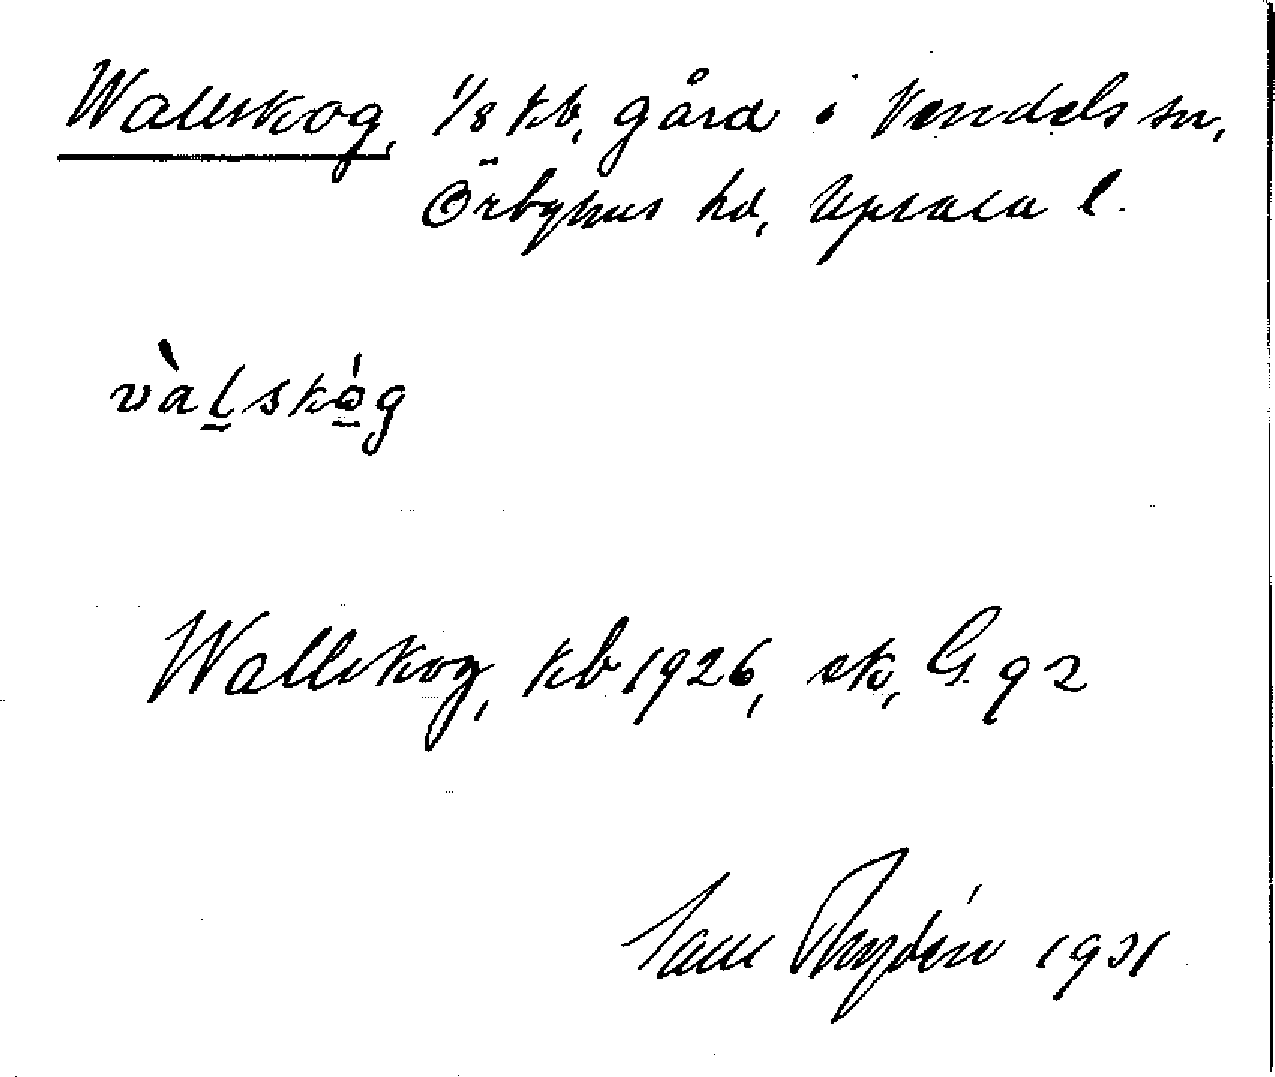 Wallskog, 1/8 kb. gård i Vendels sn,
Örbyhus hd, Upsala l.
vàl̲skó̲g
Wallskog, kb 1926, ek, G. 92
1931